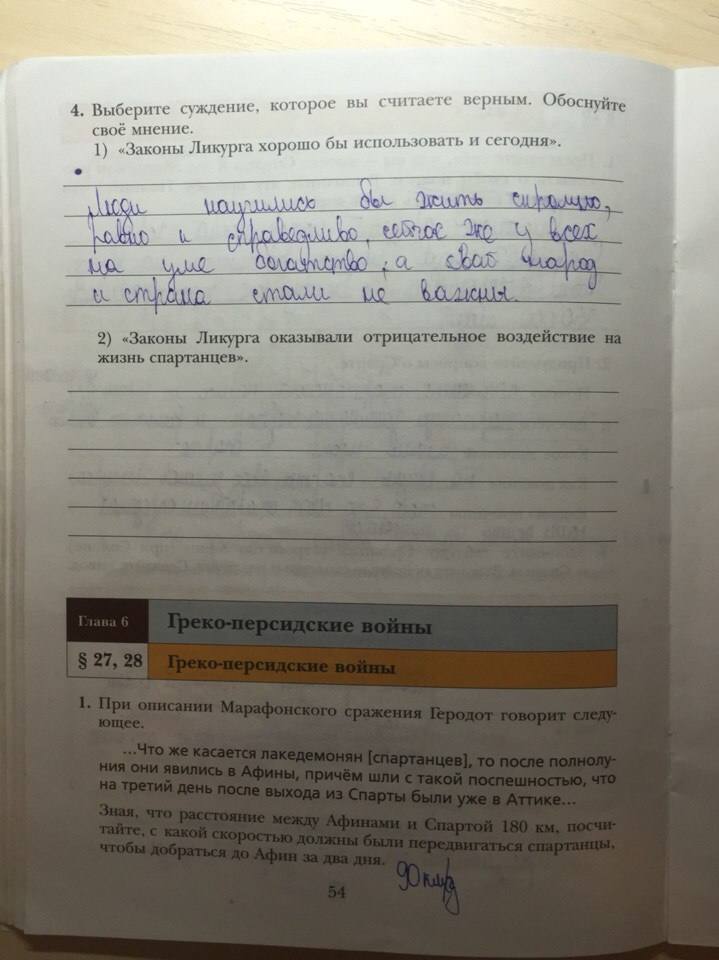 4. Выберите суждение, которое вы считаете верным. Обоснуйте
своё мнение.
1) «Законы Ликурга хорошо бы использовать и сегодня».
Люди научились бы жить скромно,
равно и справедливо, сейчас же у всех
на уме богатство, а свой народ
и страна стали не важны.
2) «Законы Ликурга оказывали отрицательное воздействие на
жизнь спартанцев».
Глава 6
Греко-персидские войны
§ 27, 28
Греко-персидские войны
1. При описании Марафонского сражения Геродот говорит следу-
ющее.
...Что же касается лакедемонян [спартанцев], то после полнолу-
ния они явились в Афины, причём шли с такой поспешностью, что
на третий день после выхода из Спарты были уже в Аттике...
Зная, что расстояние между Афинами и Спартой 180 км, посчи-
тайте, с какой скоростью должны были передвигаться спартанцы,
чтобы добраться до Афин за два дня.
90 км/д
54